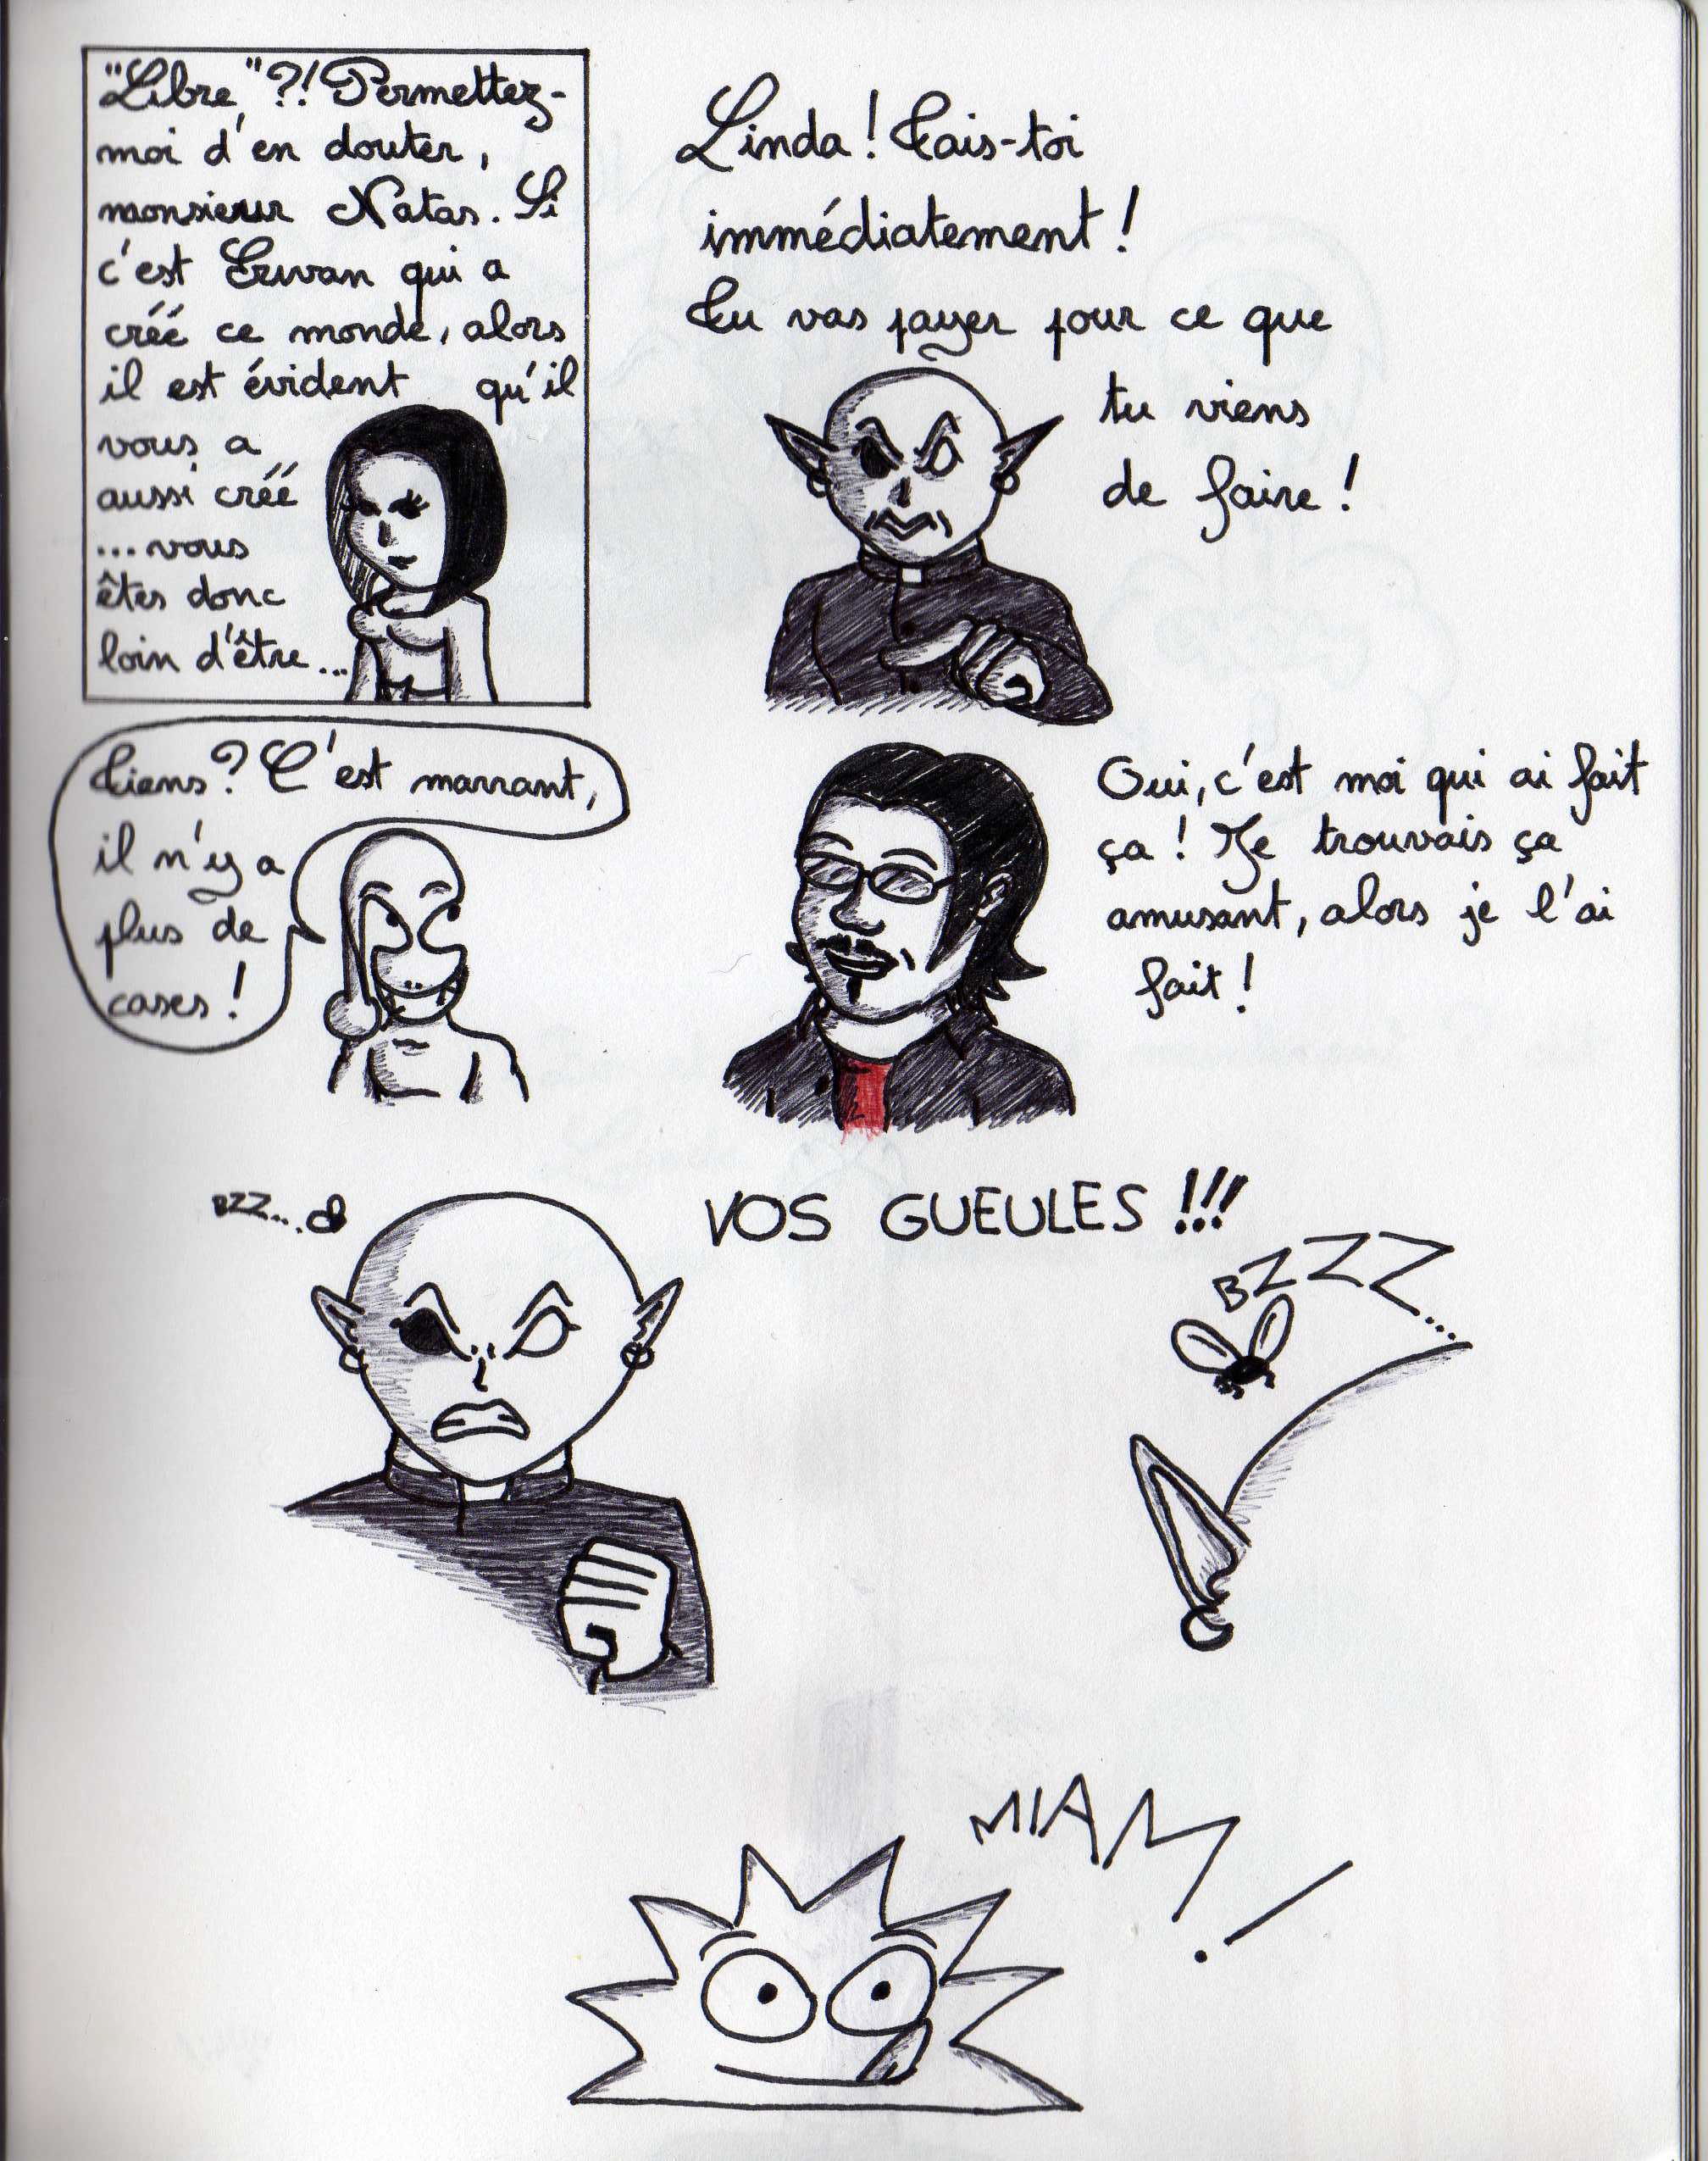 "Libre"?! Permettez-
moi d'en douter,
monsieur Natas. Si
c'est Erwan qui a
créé ce monde, alors
il est évident qu'il
vous a
aussi créé
...vous
êtes donc
loin d'être...
Linda! Tais-toi
immédiatement!
Tu vas payer pour ce que
tu viens
de faire!
Tiens? C'est marrant,
il n'y a
plus de
cases!
Oui, c'est moi qui ai fait
ça! Je trouvais ça
amusant, alors je l'ai
fait!
BZZ...
VOS GUEULES!!!
BZZZ...
MIAM!